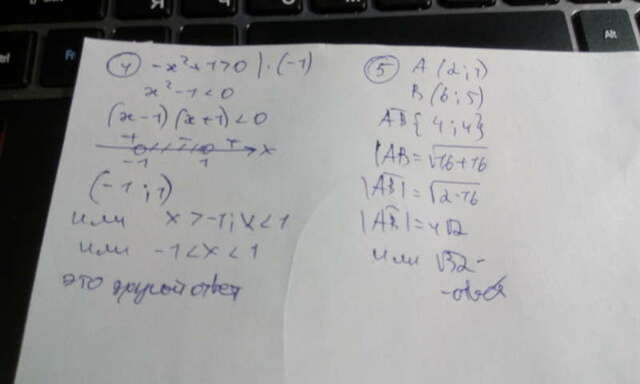 ④ -x²+1>0 | ·(-1)
x²-1<0
(x-1)(x+1)<0
+ - + x
-1 1
(-1;1)
или x>-1; x<1
или -1<x<1
это другой ответ
⑤ A(2;1)
B(6;5)
AB{4;4}
|AB=√16+16
|AB|=√2·16
|AB|=4√2
или √32-
-ответ
Alt